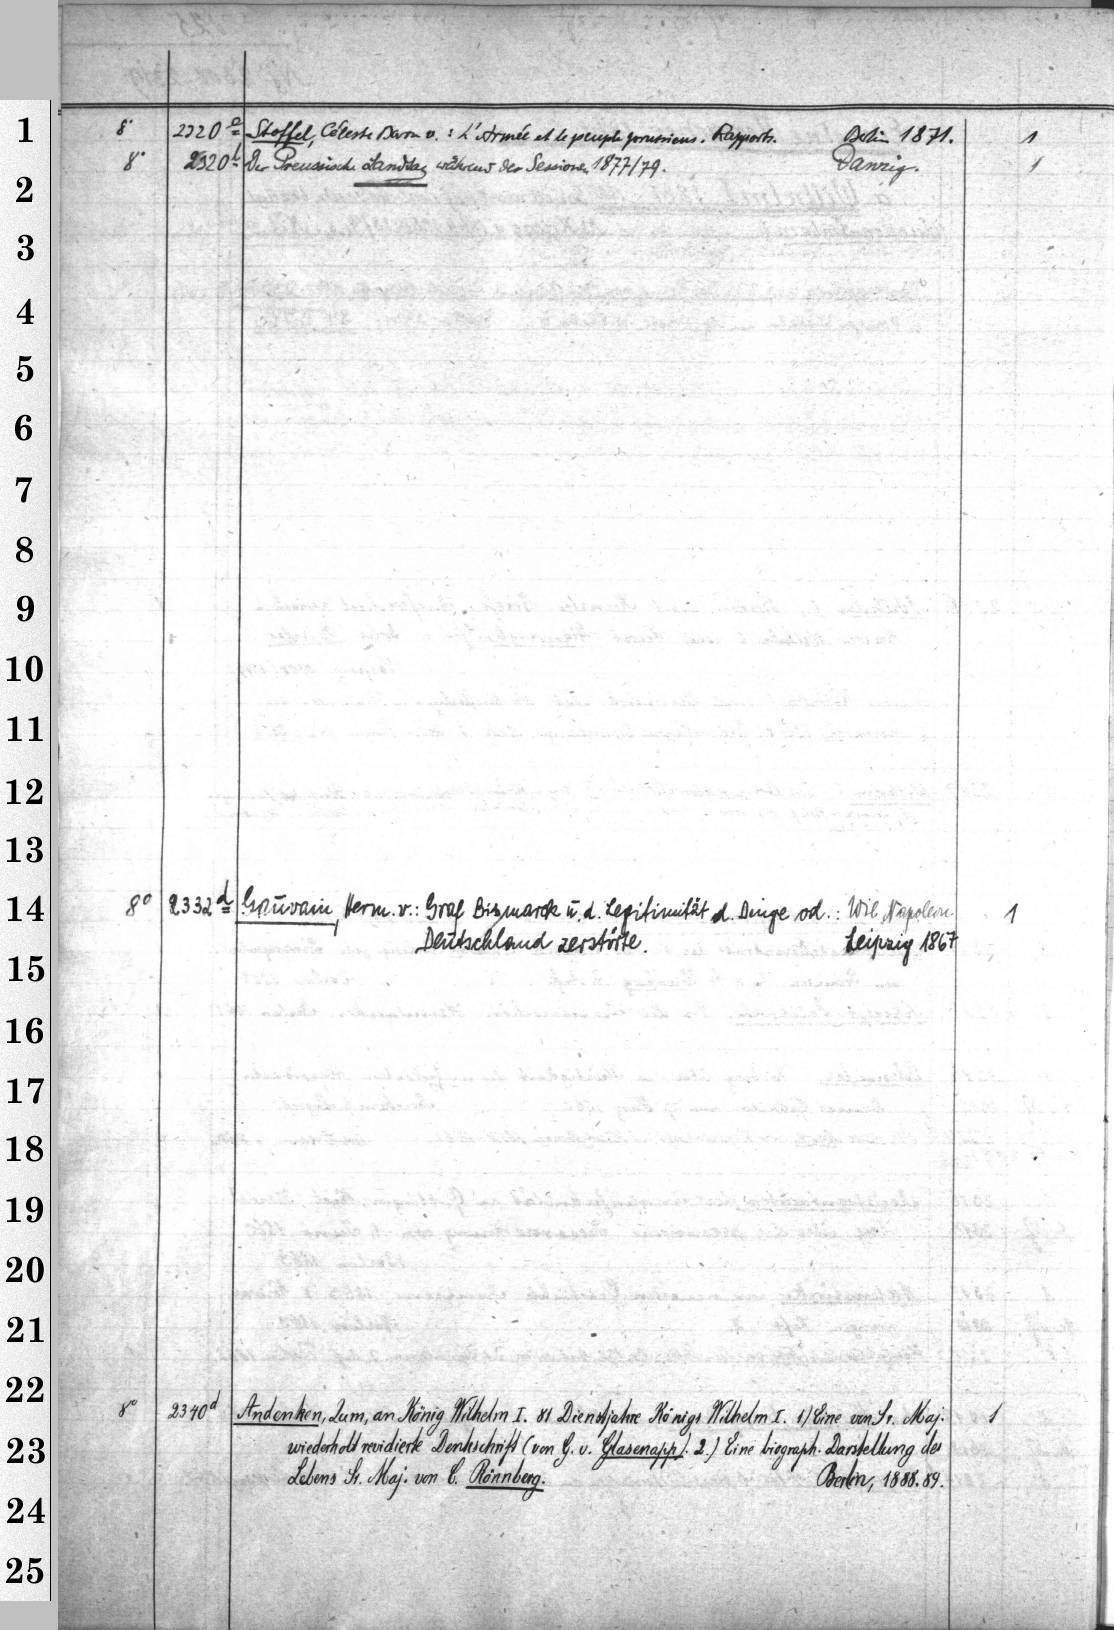 1
8° 2320 a Stoffel, Céleste Baron v.: L'Armée et le peuple prussiens. Rapports. Berlin 1871. 1
8° 2320 b Der Preussische Landtag während der Sessionen 1877/79. Danzig. 1
2
3
4
5
6
7
8
9
10
11
12
13
14
8° 2332 d Grauvain, Herm. v.: Graf Bismarck u. d. Legitimität d. Dinge od.: Wie Napoleon 1
Deutschland zerstörte. Leipzig 1867
15
16
17
18
19
20
21
22
8° 2340 d Andenken, Zum, an König Wilhelm I. 81 Dienstjahre Königs Wilhelm I. 1) Eine von Sr. Maj. 1
23
wiederholt revidierte Denkschrift (von G. v. Glasenapp). 2.) Eine biograph. Darstellung des
Lebens Sr. Maj. von C. Rönnberg. Berlin, 1888.89.
24
25